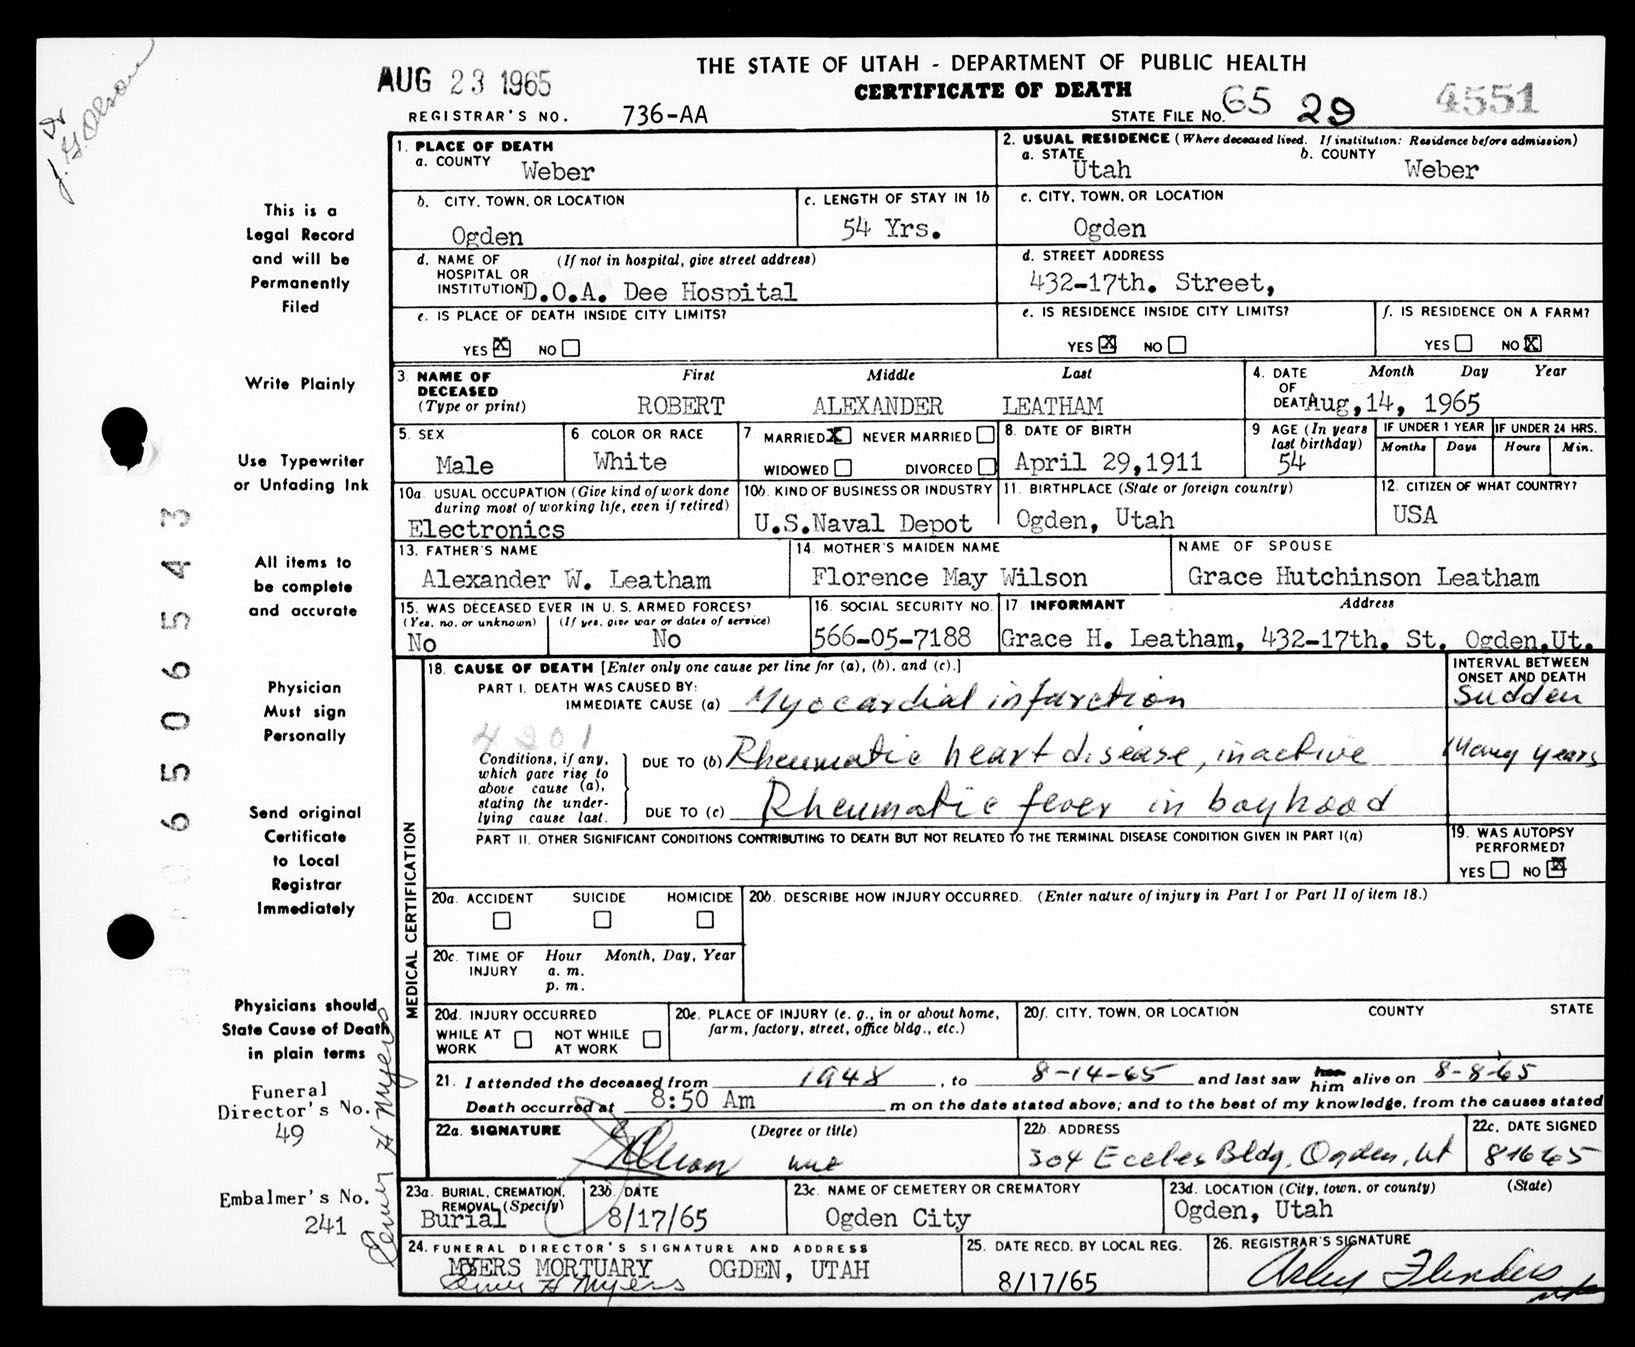 Dr
J. G. Olson
AUG 23 1965
THE STATE OF UTAH - DEPARTMENT OF PUBLIC HEALTH
CERTIFICATE OF DEATH
REGISTRAR'S NO. 736-AA
STATE FILE NO. 65 29 4551
1. PLACE OF DEATH
a. COUNTY Weber
2. USUAL RESIDENCE (Where deceased lived. If institution: Residence before admission)
a. STATE Utah b. COUNTY Weber
b. CITY, TOWN, OR LOCATION Ogden
c. LENGTH OF STAY IN 1b 54 Yrs.
c. CITY, TOWN, OR LOCATION Ogden
d. NAME OF HOSPITAL OR INSTITUTION (If not in hospital, give street address) D.O.A. Dee Hospital
d. STREET ADDRESS 432-17th. Street,
e. IS PLACE OF DEATH INSIDE CITY LIMITS? YES X NO
e. IS RESIDENCE INSIDE CITY LIMITS? YES X NO
f. IS RESIDENCE ON A FARM? YES NO X
3. NAME OF DECEASED (Type or print) First Middle Last
ROBERT ALEXANDER LEATHAM
4. DATE OF DEATH Month Day Year
Aug,14, 1965
5. SEX Male
6 COLOR OR RACE White
7 MARRIED X NEVER MARRIED
WIDOWED DIVORCED
8. DATE OF BIRTH April 29,1911
9 AGE (In years last birthday) 54
IF UNDER 1 YEAR Months Days
IF UNDER 24 HRS. Hours Min.
10a. USUAL OCCUPATION (Give kind of work done during most of working life, even if retired) Electronics
10b. KIND OF BUSINESS OR INDUSTRY U.S.Naval Depot
11. BIRTHPLACE (State or foreign country) Ogden, Utah
12. CITIZEN OF WHAT COUNTRY? USA
13. FATHER'S NAME Alexander W. Leatham
14. MOTHER'S MAIDEN NAME Florence May Wilson
NAME OF SPOUSE Grace Hutchinson Leatham
15. WAS DECEASED EVER IN U. S. ARMED FORCES?
(Yes, no, or unknown) No (If yes, give war or dates of service) No
16. SOCIAL SECURITY NO. 566-05-7188
17. INFORMANT Address
Grace H. Leatham, 432-17th. St. Ogden,Ut.
MEDICAL CERTIFICATION
18. CAUSE OF DEATH [Enter only one cause per line for (a), (b), and (c).]
INTERVAL BETWEEN ONSET AND DEATH
PART I. DEATH WAS CAUSED BY:
IMMEDIATE CAUSE (a) Myocardial infarction Sudden
4201
Conditions, if any, which gave rise to above cause (a), stating the underlying cause last.
DUE TO (b) Rheumatic heart disease, inactive Many years
DUE TO (c) Rheumatic fever in boyhood
PART II. OTHER SIGNIFICANT CONDITIONS CONTRIBUTING TO DEATH BUT NOT RELATED TO THE TERMINAL DISEASE CONDITION GIVEN IN PART I(a)
19. WAS AUTOPSY PERFORMED? YES NO X
20a. ACCIDENT SUICIDE HOMICIDE
20b. DESCRIBE HOW INJURY OCCURRED. (Enter nature of injury in Part I or Part II of item 18.)
20c. TIME OF INJURY Hour a. m. p. m. Month, Day, Year
20d. INJURY OCCURRED
WHILE AT WORK NOT WHILE AT WORK
20e. PLACE OF INJURY (e. g., in or about home, farm, factory, street, office bldg., etc.)
20f. CITY, TOWN, OR LOCATION COUNTY STATE
21. I attended the deceased from 1948, to 8-14-65 and last saw her him alive on 8-8-65
Death occurred at 8:50 Am m on the date stated above; and to the best of my knowledge, from the causes stated
22a. SIGNATURE (Degree or title)
22b. ADDRESS 304 Eccles Bldg, Ogden, Ut
22c. DATE SIGNED 8 16 65
23a. BURIAL, CREMATION, REMOVAL (Specify) Burial
23b. DATE 8/17/65
23c. NAME OF CEMETERY OR CREMATORY Ogden City
23d. LOCATION (City, town, or county) (State) Ogden, Utah
24. FUNERAL DIRECTOR'S SIGNATURE AND ADDRESS
MYERS MORTUARY OGDEN, UTAH
25. DATE RECD. BY LOCAL REG. 8/17/65
26. REGISTRAR'S SIGNATURE
This is a
Legal Record
and will be
Permanently
Filed
Write Plainly
Use Typewriter
or Unfading Ink
All items to
be complete
and accurate
Physician
Must sign
Personally
Send original
Certificate
to Local
Registrar
Immediately
Physicians should
State Cause of Death
in plain terms
Funeral
Director's No.
49
Embalmer's No.
241
6506543